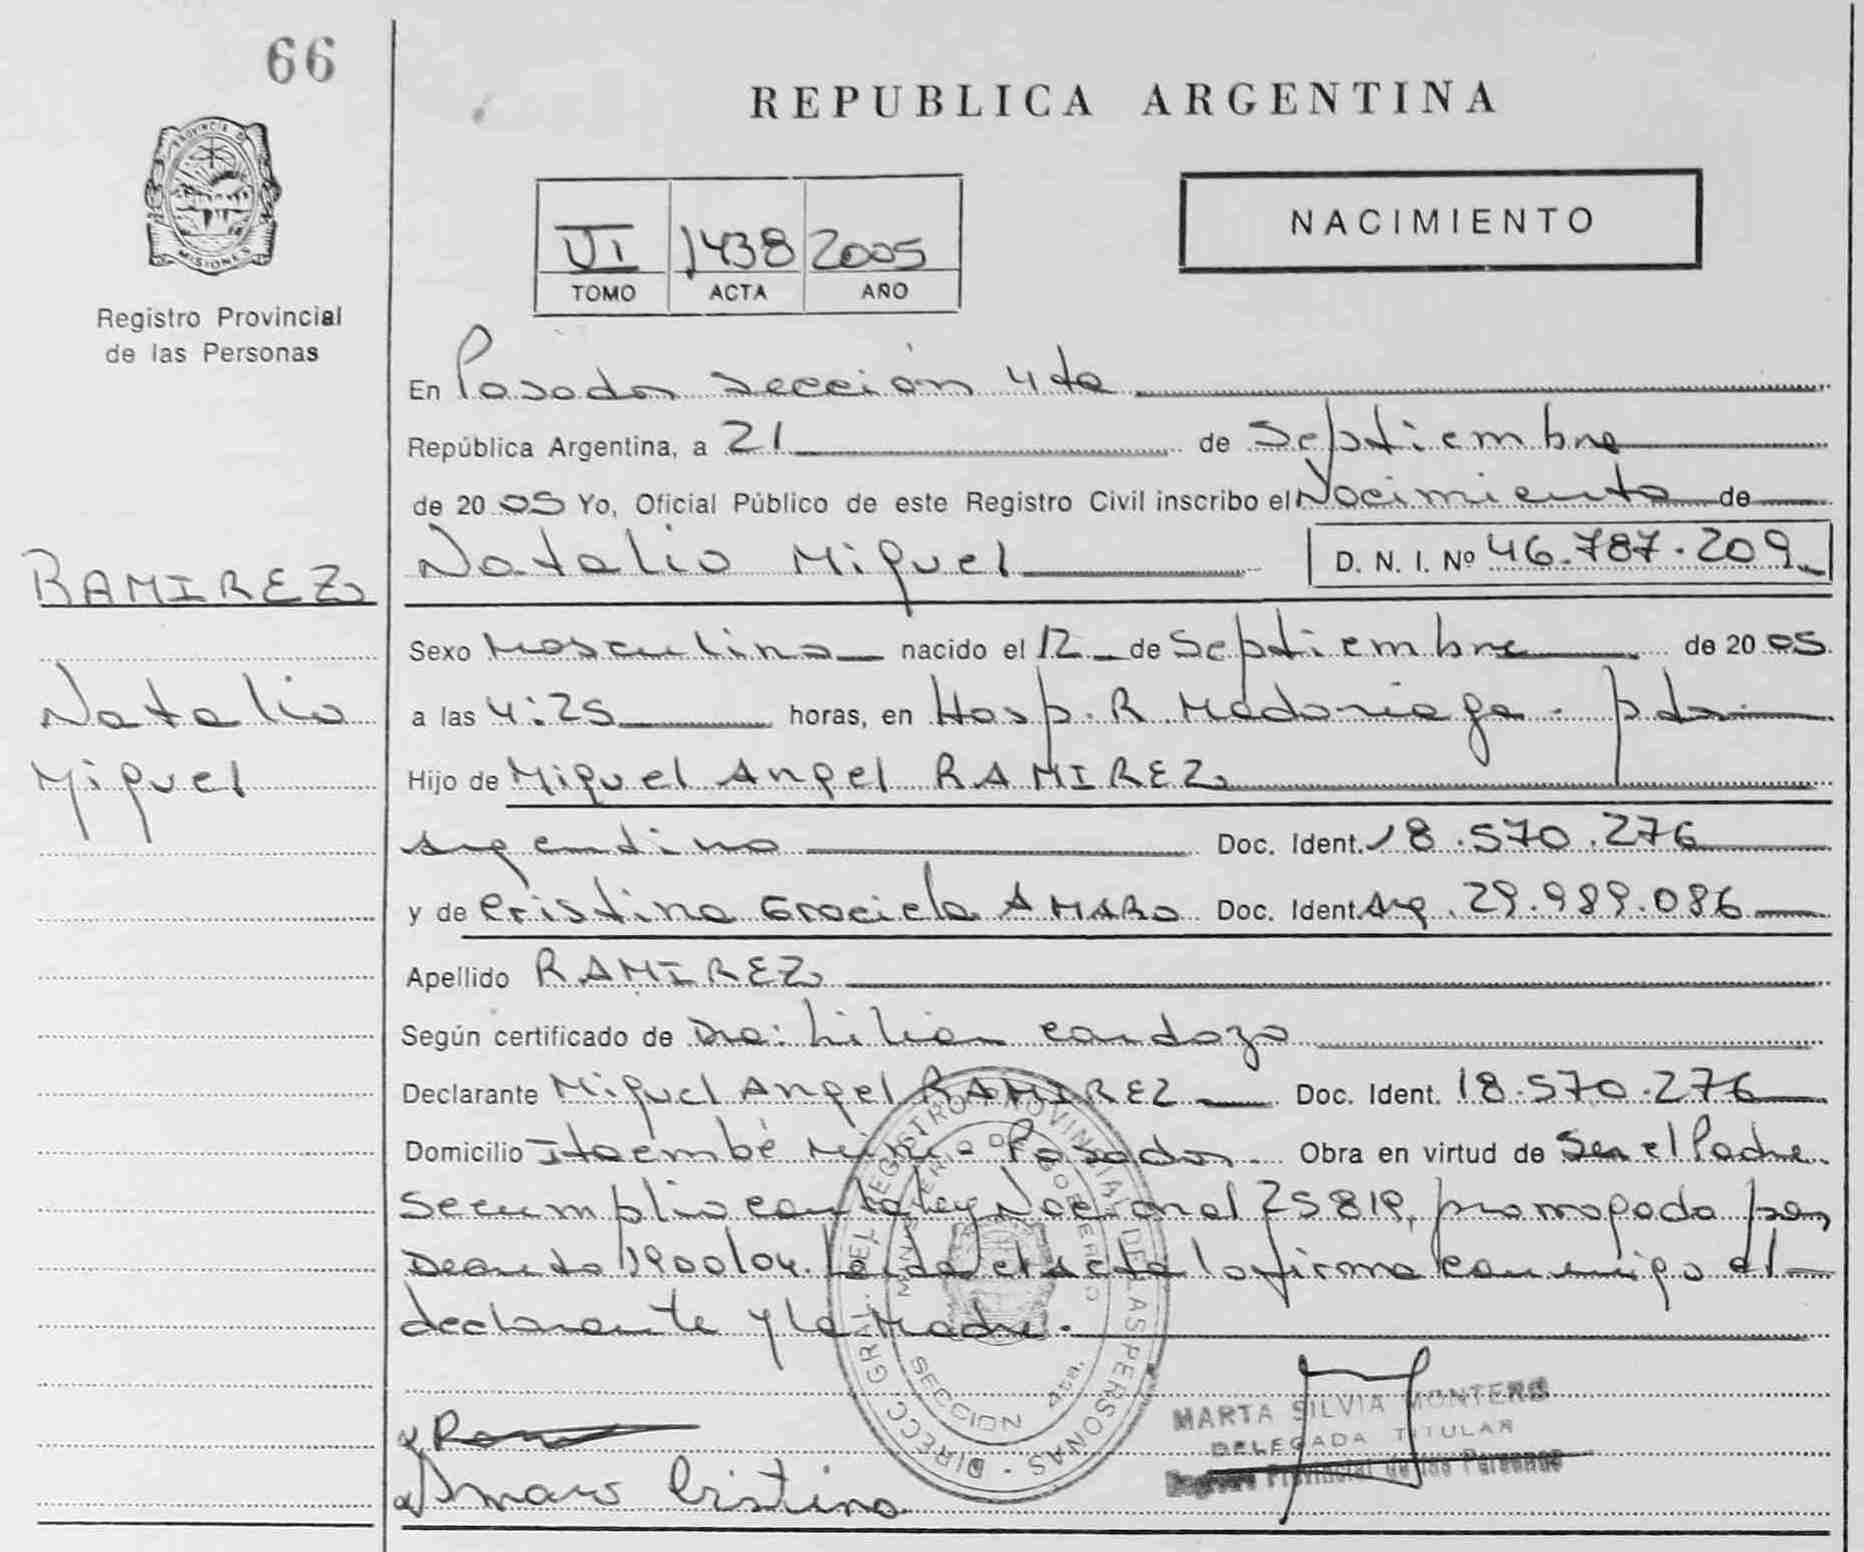 66
REPUBLICA ARGENTINA
PROVINCIA D
MISIONES
Registro Provincial
de las Personas
VI 1438 2005
TOMO ACTA AÑO
NACIMIENTO
En Posadas sección 4ta
República Argentina, a 21 de Septiembre
de 2005 Yo, Oficial Público de este Registro Civil inscribo el Nacimiento de
Natalio Miguel D. N. I. Nº 46.787.209
RAMIREZ
Natalio
Miguel
Sexo Masculino nacido el 12 de Septiembre de 2005
a las 4:25 horas, en Hosp. R Madariaga - pdas
Hijo de Miguel Angel RAMIREZ
argentino Doc. Ident. 18.570.276
y de Cristina Graciela AMARO Doc. Ident. Arg. 29.989.086
Apellido RAMIREZ
Según certificado de Dra: Lilian Cardozo
Declarante Miguel Angel RAMIREZ Doc. Ident. 18.570.276
Domicilio Itaembé Mini - Posadas. Obra en virtud de Ser el Padre.
Se cumplio con la ley Nacional 25819, promogada por
Decreto 1900/04. Leida el Acta la firma conmigo el
declarante y la Madre.
DIRECC. GRAL. DEL REGISTRO PROVINCIAL DE LAS PERSONAS
MINISTERIO DE GOBIERNO
SECCION 4ta.
MARTA SILVIA MONTERO
DELEGADA TITULAR
Registro Provincial de las Personas
Amaro Cristina